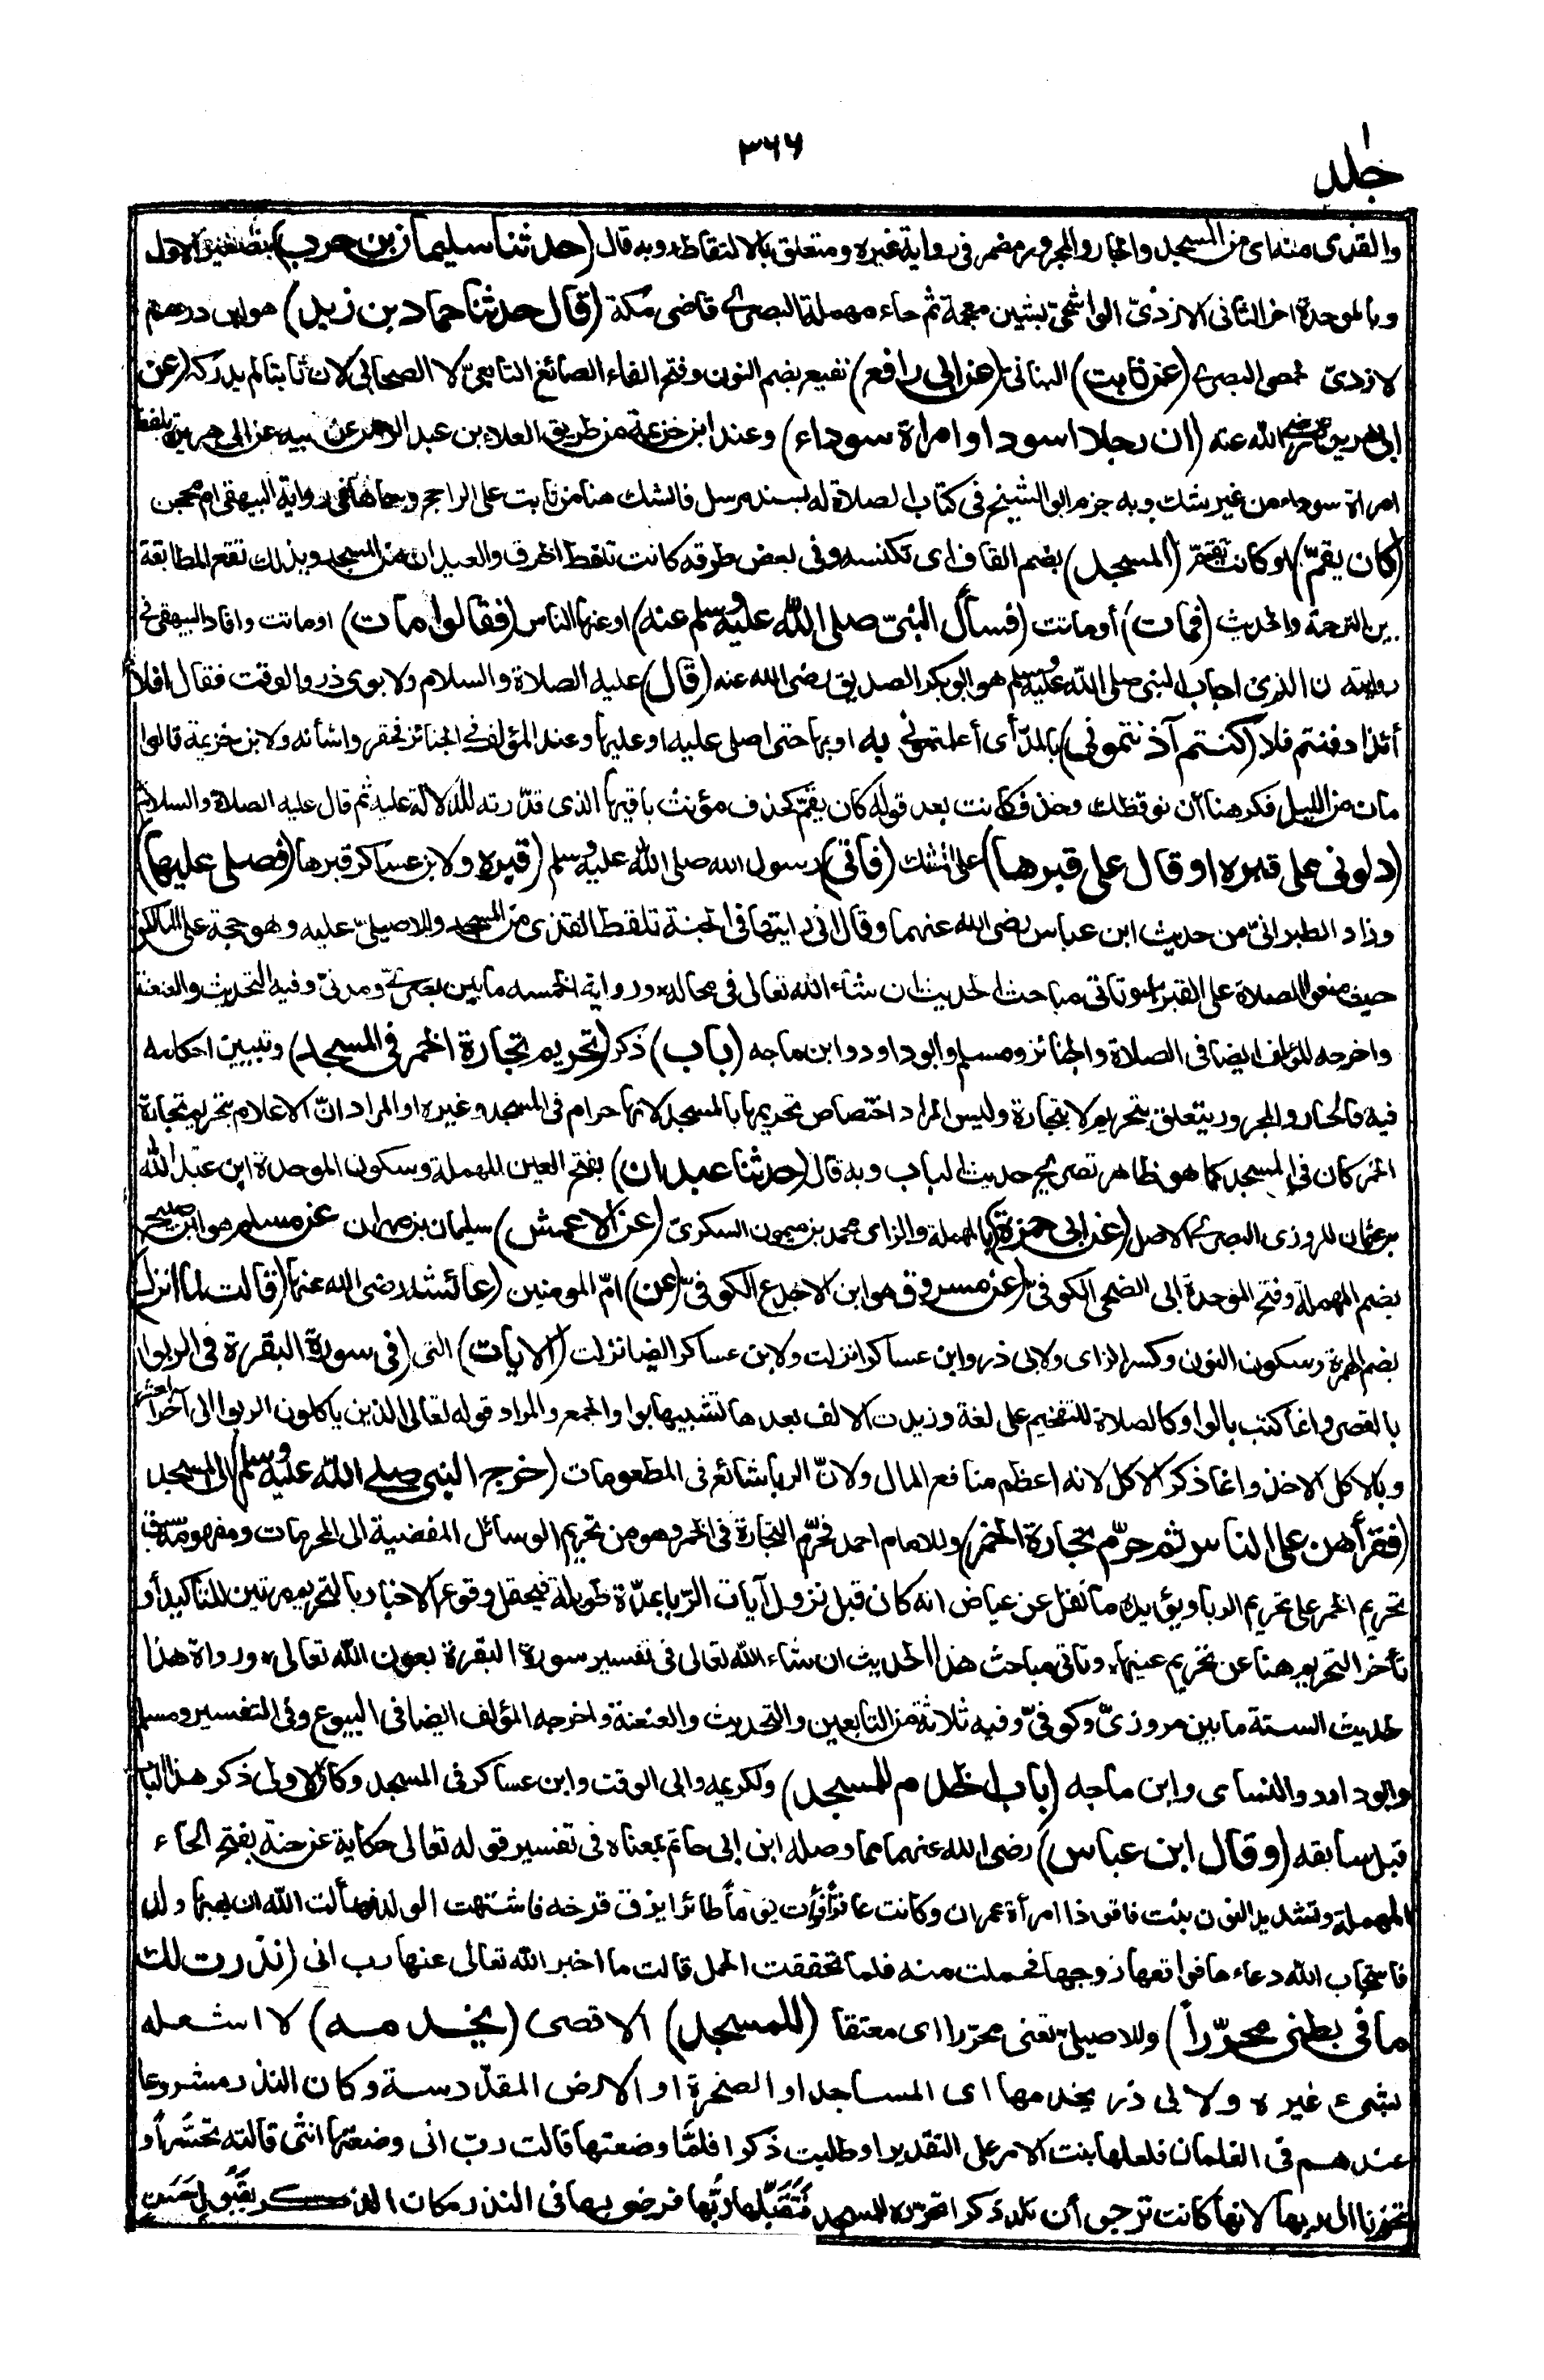 ٣٦٦
جلد ١
والقذى منه اى من المسجد والجار والمجرور مضمر فى رواية غيره ومتعلق بالالتقاط وبه قال (حدثنا سليمان بن حرب) بتصغير الاول
وبالموحدة اخر الثانى الازدىّ الواشحىّ بشين معجمة ثم حاء مهملة البصرى قاضى مكة (قال حدثنا حماد بن زيد) هو ابن درهم
لازدىّ لجهضمى البصرى (عن ثابت) البنانىّ (عن ابى رافع) نفيع بضم النون وفتح الفاء الصائغ التابعىّ لا الصحابى لان ثابتا لم يدركه (عن
ابى هريرة) رضى الله عنه (ان رجلا اسود او امراة سوداء) وعند ابن خزيمة من طريق العلاء بن عبد الرحمن عن ابيه عن ابى هريرة بلفظ
امراة سوداء من غير شك وبه جزم ابو الشيخ فى كتاب الصلاة له بسند مرسل فالشك هنا من ثابت على الراجح وسماها فى رواية البيهقى ام محجن
(كان يقمّ) او كانت تقمّ (المسجد) بضم القاف اى تكنسه وفى بعض طرقه كانت تلقط الخرق والعيدان من المسجد وبذلك تقع المطابقة
بين الترجمة والحديث (فمات) أو ماتت (فسأل النبىّ صلى الله عليه وسلم عنه) او عنها الناس (فقالوا مات) او ماتت وافاد البيهقى فى
روايته ن الذى اجاب النبى صلى الله عليه وسلم هو ابو بكر الصديق رضى الله عنه (قال) عليه الصلاة والسلام ولابوى ذر والوقت فقال (افلا
أئذا دفنتم فلا (كنتم آذنتمونى) بالمدّ أى أعلمتمونى به او بها حتى اصلى عليه او عليها وعند المؤلف فى الجنائز فحقروا شأنه ولابن خزيمة قالوا
مات من الليل فكرهنا أن نوقظك وحذف كانت بعد قوله كان يقمّ كحذف مؤنث باقيها الذى قدّرته للدلالة عليه ثم قال عليه الصلاة والسلام
(دلونى على قبره او قال على قبرها) على الشك (فاتى) رسول الله صلى الله عليه وسلم (قبره) ولابن عساكر قبرها (فصلى عليها)
وزاد الطبرانىّ من حديث ابن عباس رضى الله عنهما وقال انى رايتها فى الجنة تلقط القذى من المسجد وللاصيلىّ عليه وهو حجة على المالكية
حيث منعوا الصلاة على القبر وتاتى مباحث الحديث ان شاء الله تعالى فى محاله ورواية الخمسة ما بين بصرىّ ومدنىّ وفيه التحديث والعنعنة
واخرجه المؤلف ايضا فى الصلاة والجنائز ومسلم وابو داود وابن ماجه (باب) ذكر (تحريم تجارة الخمر فى المسجد) وتبيين احكامه
فيه فالجار والمجرور يتعلق بتحريم لا بتجارة وليس المراد اختصاص تحريمها بالمسجد لانها حرام فى المسجد وغيره او المراد انّ الاعلام بتحريم تجارة
الخمر كان فى المسجد كما هو ظاهر تصريح حديث الباب وبه قال (حدثنا عبدان) بفتح العين المهملة وسكون الموحدة ابن عبد الله
بن عثمان المروزى البصرى الاصل (عن ابى حمزة) بالمهملة والزاى محمد بن ميمون السكرىّ (عن الاعمش) سليمان بن مهران عن مسلم هو ابن صبيح
بضم المهملة وفتح الموحدة ابى الضحى الكوفىّ (عن مسروق) هو ابن الاجدع الكوفىّ (عن) امّ المومنين (عائشة) رضى الله عنها (قالت لما انزل
بضم الهمزة وسكون النون وكسر الزاى ولابى ذر وابن عساكر انزلت ولابن عساكر ايضا نزلت (الايات) التى (فى سورة البقرة فى الربوا)
بالقصر وانما كتب بالواو كالصلاة للتفخيم على لغة وزيدت الالف بعدها تشبيها بواو الجمع والمراد قوله تعالى الذين ياكلون الربوا الى آخر العشر
وبالاكل الاخذ وانما ذكر الاكل لانه اعظم منافع المال ولانّ الربا شائع فى المطعومات (خرج النبى صلى الله عليه وسلم) الى المسجد
(فقرأهن على الناس ثم حرّم تجارة الخمر) وللامام احمد فحرّم التجارة فى الخمر وهو من تحريم الوسائل المفضية الى المحرمات ومفهومه سبق
تحريم الخمر على تحريم الربا ويؤيده ما نقل عن عياض انه كان قبل نزول آيات الرّبا بمدّة طويلة فيحتمل وقوع الاخبار بالتحريم مرتين للتاكيد أو
تأخر التحريم هنا عن تحريم عينها وتاتى مباحث هذا الحديث ان شاء الله تعالى فى تفسير سورة البقرة بعون الله تعالى ورواة هذا
لحديث الستة ما بين مروزىّ وكوفىّ وفيه ثلاثة من التابعين والتحديث والعنعنة واخرجه المؤلف ايضا فى البيوع وفى التفسير ومسلم
وابو داود والنساى وابن ماجه (باب الخدم للمسجد) ولكريمه وابى الوقت وابن عساكر فى المسجد وكان الاولى ذكر هذا الباب
قبل سابقه (وقال ابن عباس) رضى الله عنهما مما وصله ابن ابى حاتم بمعناه فى تفسير قوله تعالى حكاية عن حنة بفتح الحاء
المهملة وتشديد النون بنت فاقوذا امرأة عمران وكانت عاقرا فرأت يوماً طائرا يزق فرخه فاشتهت الولد فسألت الله ان يهبها ولدا
فاستجاب الله دعاءها فواقعها زوجها فحملت منه فلما تحققت الحمل قالت ما اخبر الله تعالى عنها رب انى (نذرت لك
ما فى بطنى محرّراً) وللاصيلىّ تعنى محرّرا اى معتقا (للمسجد) الاقصى (يخدمه) لا اشغله
بشىء غيره ولابى ذر يخدمها اى المساجد او الصخرة او الارض المقدّسة وكان النذر مشروعا
عندهم فى الغلمان فلعلها بنت الامر على التقدير او طلبت ذكرا فلمّا وضعتها قالت ربّ انى وضعتها انثى قالته تحسّراً و
تحزنا الى ربها لانها كانت ترجو أن تلد ذكرا تحرّره للمسجد فَتَقَبَّلَها ربُّها فرضى بها فى النذر مكان الذكر بقَبُولٍ حَسَنٍ